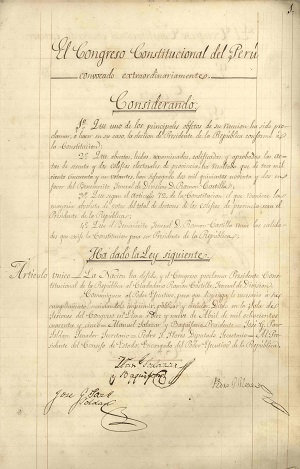 El Congreso Constitucional del Perú
convocado extraordinariamente
Considerando
1º Que uno de los principales objetos de su reunion ha sido pro-
clamar, ó hacer en su caso la eleccion de Presidente de la República conforme á
la Constitucion.
2º Que abiertas, leidas, examinadas, calificadas y aprobadas las ac-
tas de los colegios electorales de provincia, ha resultado que de tres mil
ciento y un votantes, han sufragado dos mil quinientos noventa y dos en
favor del Benemérito General de Division D. Ramon Castilla.
3º Que segun el Artículo de la Constitucion el que reuniere la
mayoria absoluta de votos del total de electores de los Colegios de provincia será el
Presidente de la República.
4º Que el Benemérito General D. Ramon Castilla tiene las calida-
des que exije la Constitucion para ser Presidente de la República.
Ha dado la Ley siguiente
Artículo único. La Nacion ha elejido y el Congreso proclama Presidente Consti-
tucional de la República al Ciudadano Ramon Castilla General de Division.
Comuníquese al Poder Ejecutivo, para que disponga lo necesario á su
cumplimiento, mandándolo imprimir, publicar y circular. Dado en la Sala de
Sesiones del Congreso en Lima á de Abril de mil ochocientos
cuarenta y cinco. Manuel Salazar y Baquíjano, Presidente
Senador Secretario
sidente del Consejo de Estado, Encargado del Poder Ejecutivo de la República.
Man. Salazar
y Baquíjano